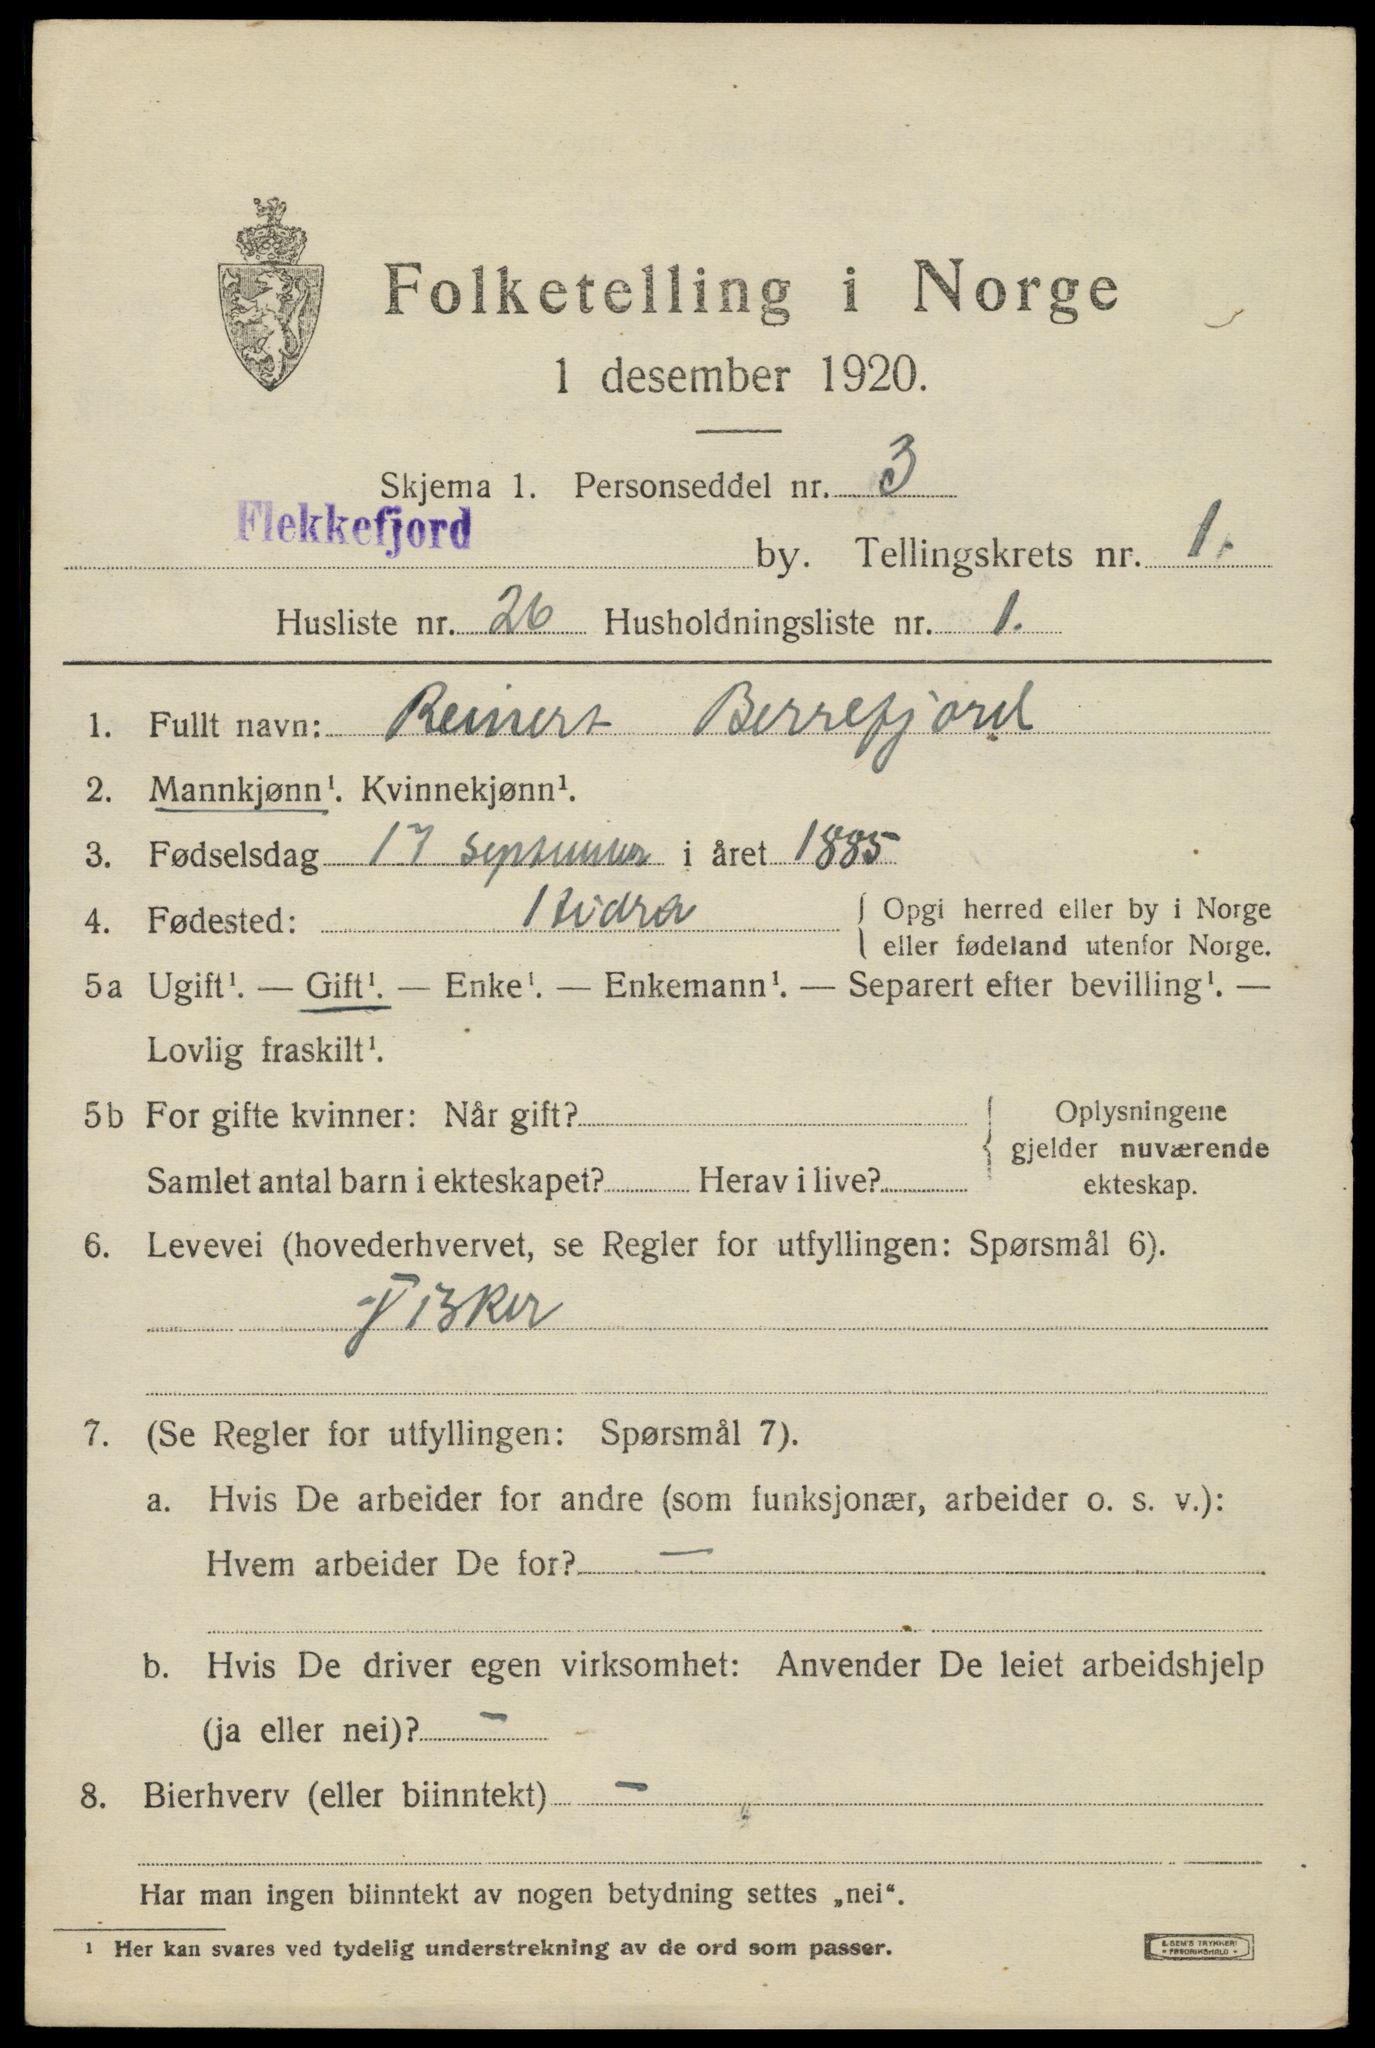 Folketelling i Norge
1 desember 1920.
Skjema 1. Personseddel nr. 3
Flekkefjord by. Tellingskrets nr. 1.
Husliste nr. 26 Husholdningsliste nr. 1.
1. Fullt navn: Reinert Berrefjord
2. Mannkjønn¹. Kvinnekjønn¹.
3. Fødselsdag 17 september i året 1885
4. Fødested: Hidra { Opgi herred eller by i Norge
eller fødeland utenfor Norge.
5a Ugift¹. — Gift¹. — Enke¹. — Enkemann¹. — Separert efter bevilling¹. —
Lovlig fraskilt¹.
5b For gifte kvinner: Når gift?
Samlet antal barn i ekteskapet? Herav i live?
{ Oplysningene
gjelder nuværende
ekteskap.
6. Levevei (hovederhvervet, se Regler for utfyllingen: Spørsmål 6).
Fisker
7. (Se Regler for utfyllingen: Spørsmål 7).
a. Hvis De arbeider for andre (som funksjonær, arbeider o. s. v.):
Hvem arbeider De for? —
b. Hvis De driver egen virksomhet: Anvender De leiet arbeidshjelp
(ja eller nei)? —
8. Bierhverv (eller biinntekt) —
Har man ingen biinntekt av nogen betydning settes „nei“.
¹ Her kan svares ved tydelig understrekning av de ord som passer.
E. SEM'S TRYKKERI
• FREDRIKSHALD •